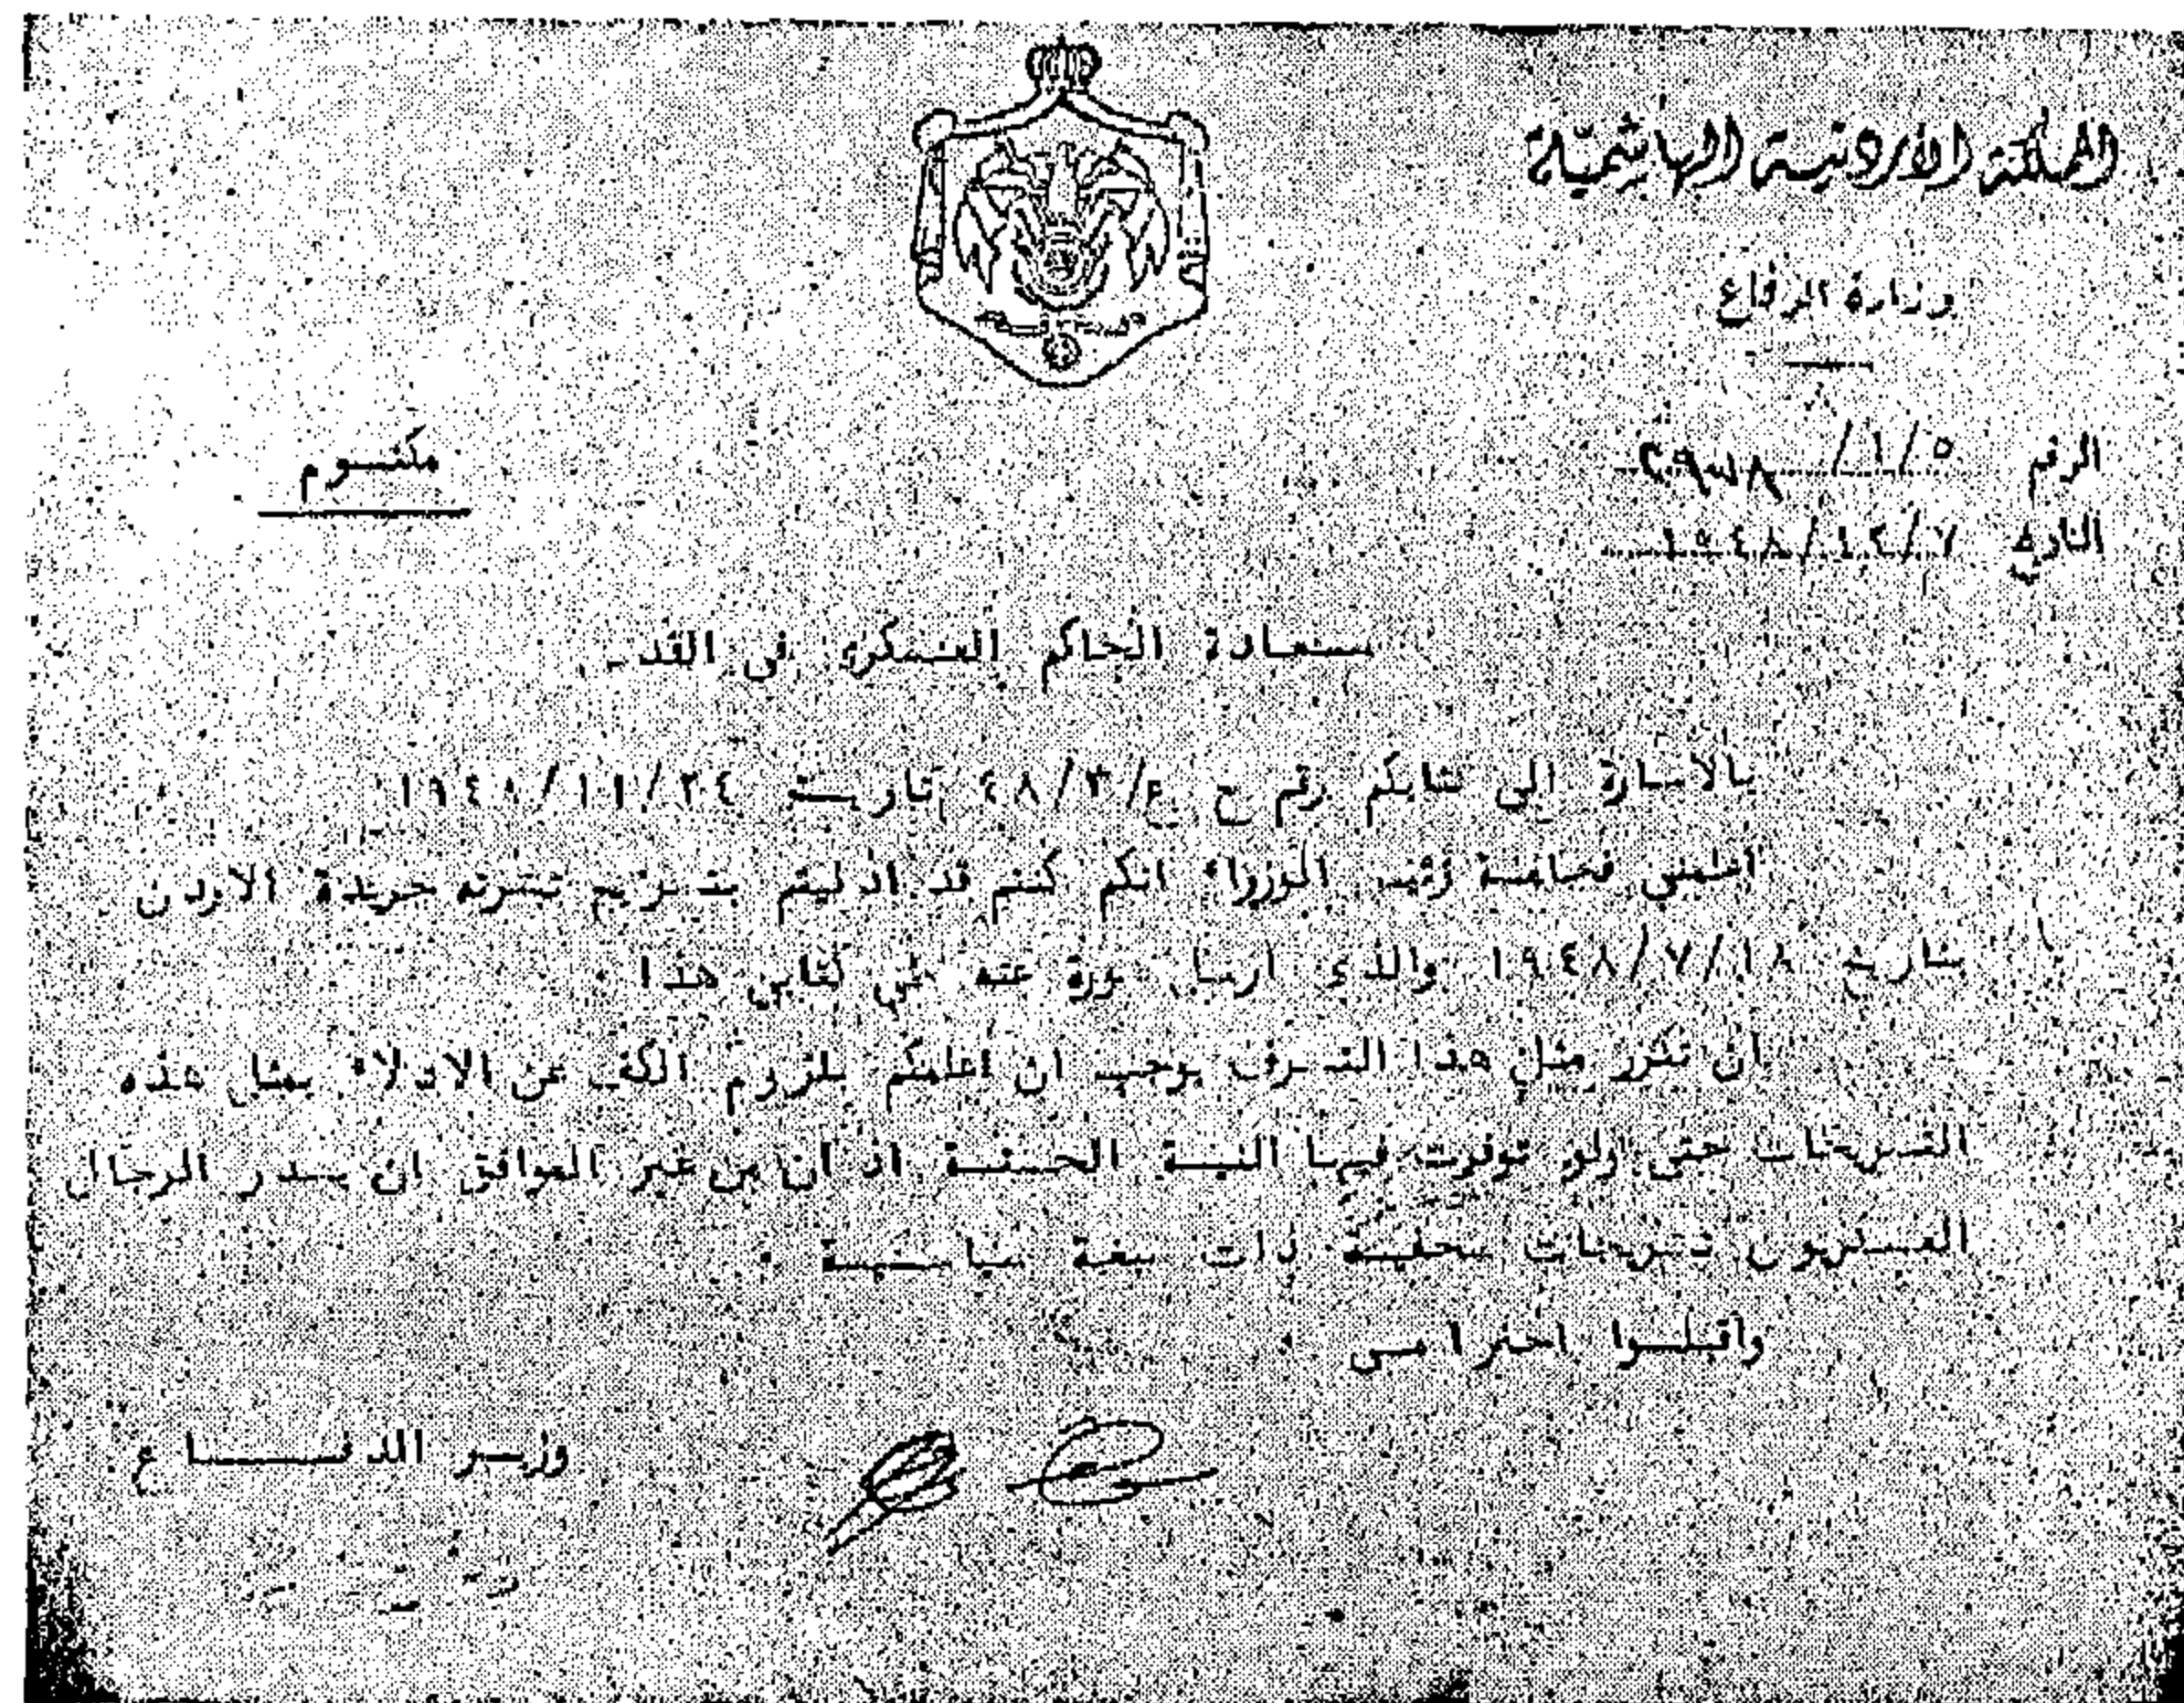 المملكة الأردنية الهاشمية
وزارة الدفاع
الرقم ٥/١/
التاريخ ٧/١٢/١٩٤٨
مكتوم
سعادة الحاكم العسكري في القدس
بالاشارة الى كتابكم رقم ح ع/٣/٤٨ تاريخ ٢٤/١١/١٩٤٨
اعلمني فخامة رئيس الوزراء انكم كنتم قد ادليتم بتصريح نشرته جريدة الاردن
بتاريخ ١٨/٧/١٩٤٨ والذي ارسل صورة عنه طي كتابي هذا .
ان تكرر مثل هذا التصرف يوجب ان اعلمكم بلزوم الكف عن الادلاء بمثل هذه
التصريحات حتى ولو توفرت فيها النية الحسنة اذ ان من غير الموافق ان يصدر الرجال
العسكريون تصريحات صحفية ذات صبغة سياسية .
واقبلوا احترامي .
وزير الدفاع